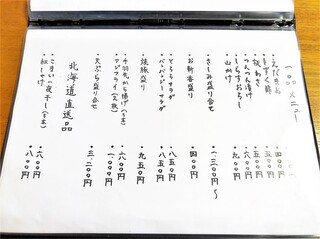 一品メニュー
・えだまめ 四〇〇円
・もずく酢 五〇〇円
・板わさ 五〇〇円
・つぶわさ漬け
・しらすおろし 六〇〇円
・山かけ 九〇〇円
・さしみ盛り合せ 一三〇〇円〜
・お新香盛り 四〇〇円
・とろろサラダ 八五〇円
・バンバンジーサラダ 八五〇円
・焼豚盛り 九五〇円
・手羽先から揚げ(4本) 八〇〇円
・アジフライ(2枚) 一、一〇〇円
・天ぷら盛り合せ 三、二〇〇円
北海道直送品
・こまい一夜干し(3本) 六〇〇円
・紅しゃけ 八〇〇円